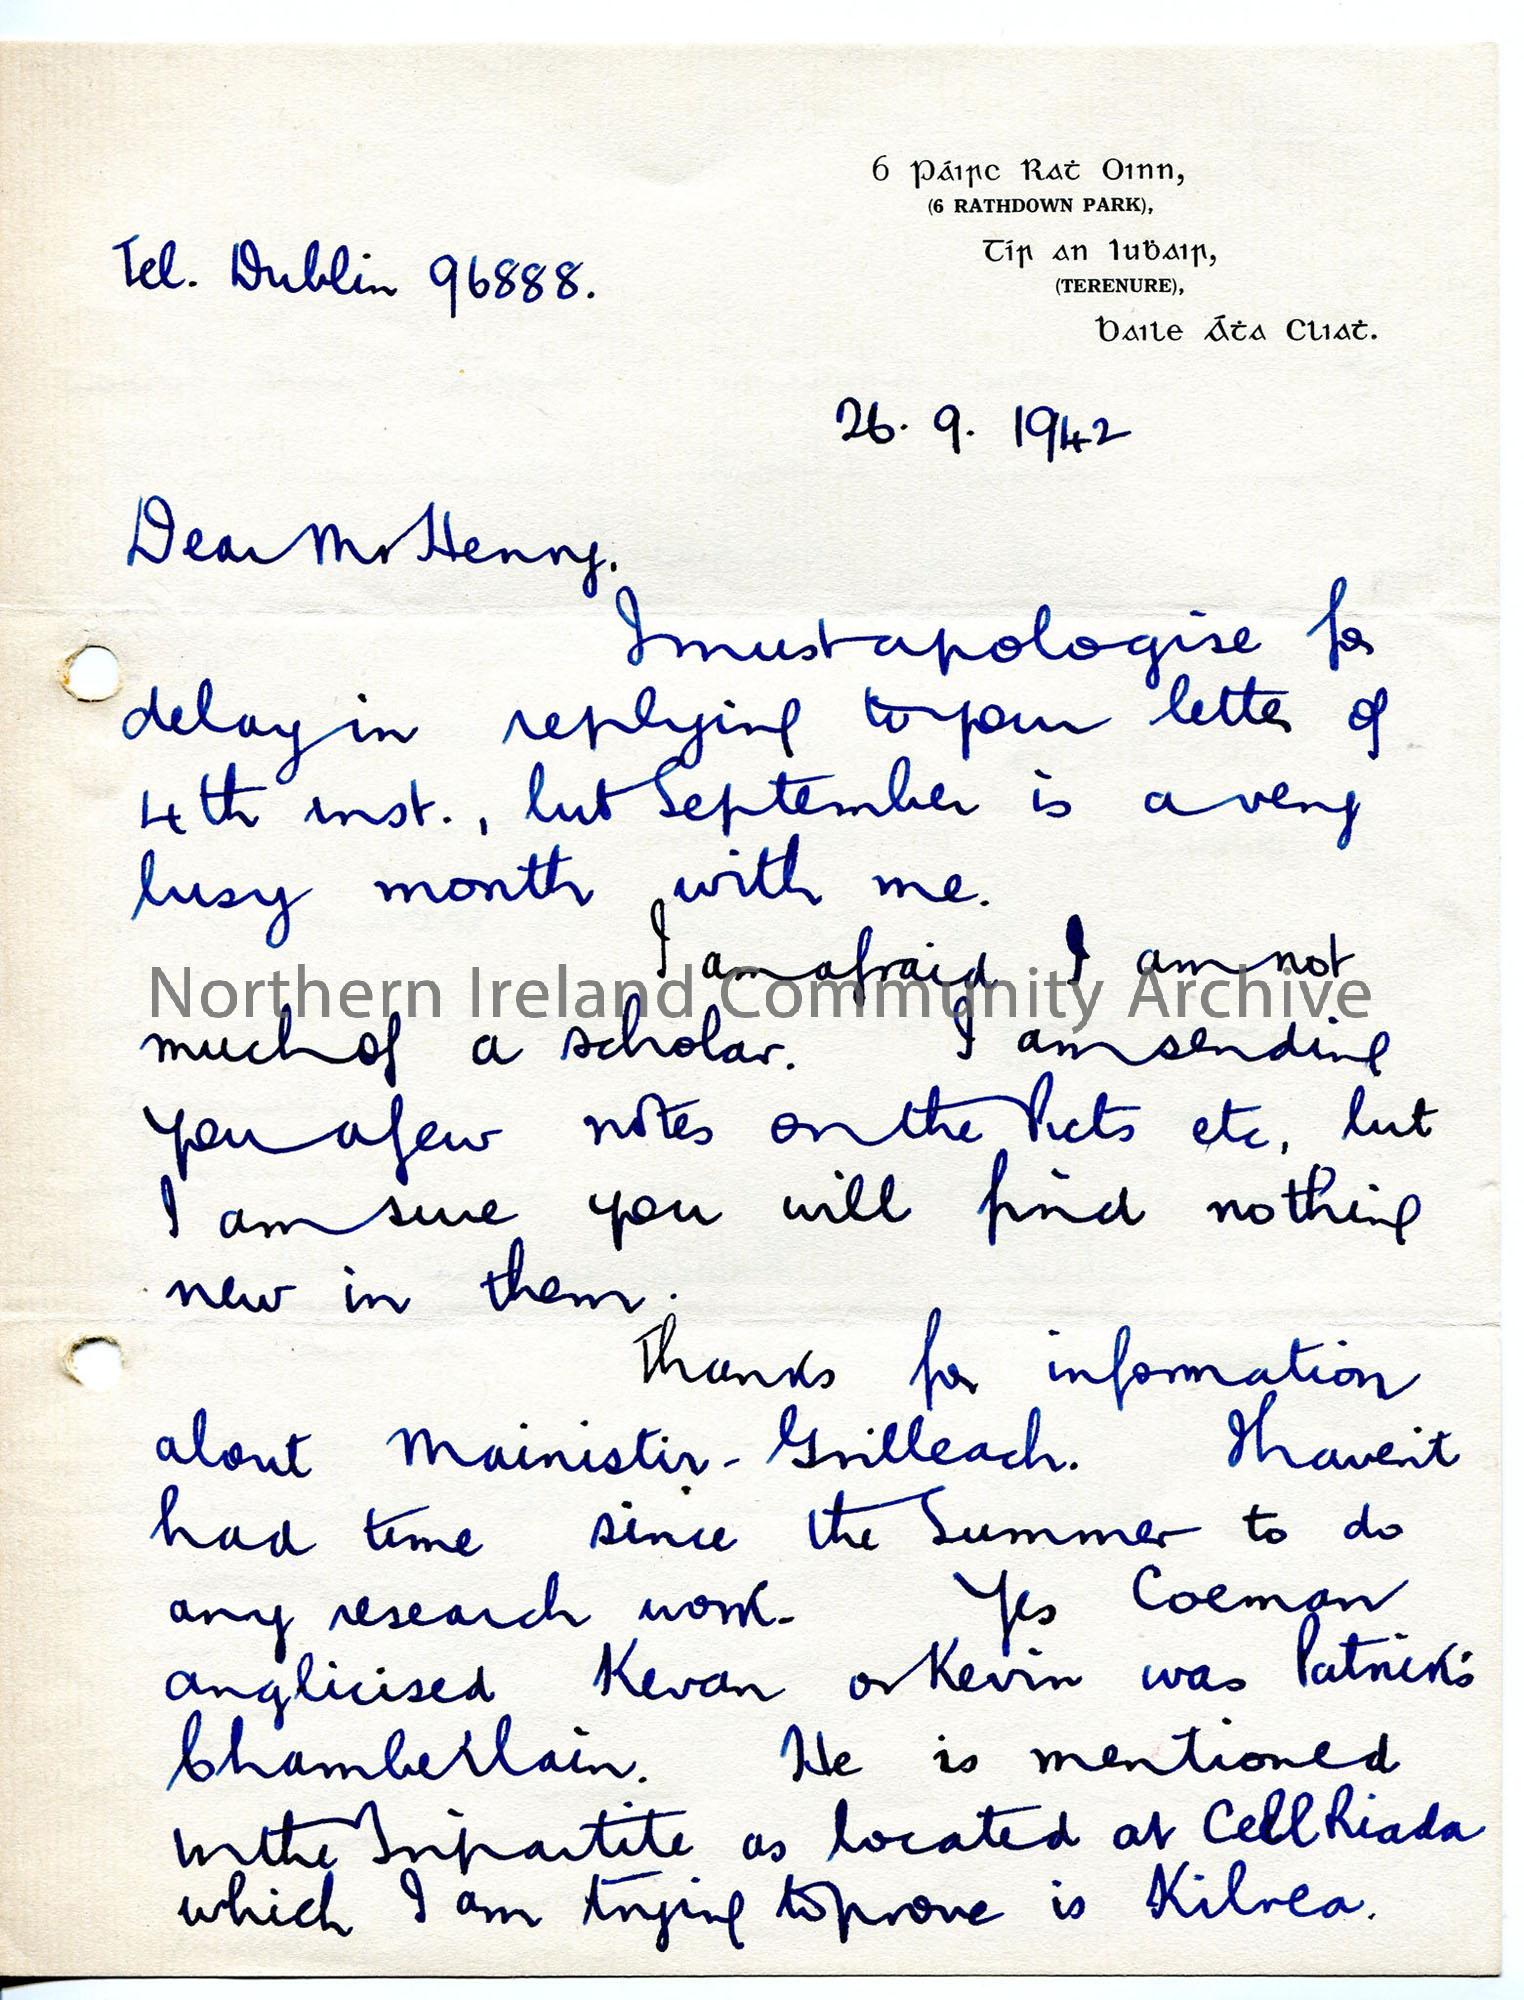 6 Páirc Raṫ Oinn,
(6 RATHDOWN PARK),
Tír an Iuḃair,
(TERENURE),
Baile Áṫa Cliaṫ.
Tel. Dublin 96888.
26. 9. 1942
Dear Mr Henry.
I must apologise for
delay in replying to your letter of
4th inst., but September is a very
busy month with me.
I am afraid I am not
Northern Ireland Community Archive
much of a scholar. I am sending
you a few notes on the Picts etc, but
I am sure you will find nothing
new in them.
Thanks for information
about Mainistir-Grilleach. I haven't
had time since the Summer to do
any research work. Yes Coeman
anglicised Kevan or Kevin was Patrick's
Chamberlain. He is mentioned
in the Tripartite as located at Cell Riada
which I am trying to prove is Kilrea.